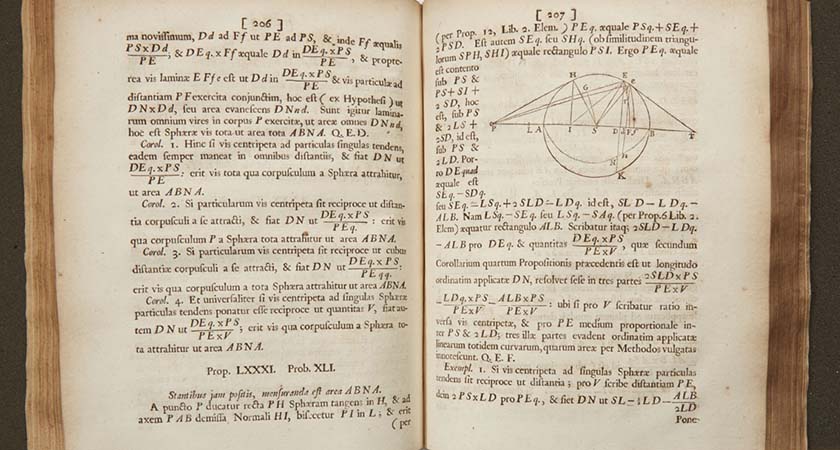 [ 206 ]
ma novissimum, Dd ad Ff ut PE ad PS, & inde Ff æqualis
PS x Dd / PE; & DE q. x Ff æquale Dd in DE q. x PS / PE, & propte-
rea vis laminæ EFfe est ut Dd in DE q. x PS / PE & vis particulæ ad
distantiam PF exercita conjunctim, hoc est (ex Hypothesi) ut
DN x Dd, seu area evanescens DNnd. Sunt igitur lamina-
rum omnium vires in corpus P exercitæ, ut areæ omnes DNnd,
hoc est Sphæræ vis tota ut area tota ABNA. Q. E. D.
Corol. 1. Hinc si vis centripeta ad particulas singulas tendens,
eadem semper maneat in omnibus distantiis, & fiat DN ut
DE q. x PS / PE: erit vis tota qua corpusculum a Sphæra attrahitur,
ut area ABNA.
Corol. 2. Si particularum vis centripeta sit reciproce ut distan-
tia corpusculi a se attracti, & fiat DN ut DE q. x PS / PE q.: erit vis
qua corpusculum P a Sphæra tota attrahitur ut area ABNA.
Corol. 3. Si particularum vis centripeta sit reciproce ut cubus
distantiæ corpusculi a se attracti, & fiat DN ut DE q. x PS / PE qq.:
erit vis qua corpusculum a tota Sphæra attrahitur ut area ABNA.
Corol. 4. Et universaliter si vis centripeta ad singulas Sphæræ
particulas tendens ponatur esse reciproce ut quantitas V, fiat au-
tem DN ut DE q. x PS / PE x V; erit vis qua corpusculum a Sphæra to-
ta attrahitur ut area ABNA.
Prop. LXXXI. Prob. XLI.
Stantibus jam positis, mensuranda est area ABNA.
A puncto P ducatur recta PH Sphæram tangens in H, & ad
axem PAB demissa Normali HI, bisecetur PI in L; & erit
(per
[ 207 ]
(per Prop. 12, Lib. 2. Elem.) PE q. æquale PS q. + SE q. +
2 PSD. Est autem SE q. seu SH q. (ob similitudinem triangu-
lorum SPH, SHI) æquale rectangulo PSI. Ergo PE q. æquale
est contento
sub PS &
PS + SI +
2 SD, hoc
est, sub PS
& 2LS +
2SD, id est,
sub PS &
2LD. Por-
ro DE quad
æquale est
SE q. - SD q.
H
E
e
G
P
L
A
I
S
D
F
f
B
T
n
N
K
seu SE q. - LS q. + 2 SLD - LD q. id est, SLD - LD q. -
ALB. Nam LS q. - SE q. seu LS q. - SA q. (per Prop. 6 Lib. 2.
Elem) æquatur rectangulo ALB. Scribatur itaq; 2SLD - LD q.
- ALB pro DE q. & quantitas DE q. x PS / PE x V, quæ secundum
Corollarium quartum Propositionis præcedentis est ut longitudo
ordinatim applicatæ DN, resolvet sese in tres partes 2SLD x PS / PE x V
- LD q. x PS / PE x V - ALB x PS / PE x V: ubi si pro V scribatur ratio in-
versa vis centripetæ, & pro PE medium proportionale in-
ter PS & 2LD; tres illæ partes evadent ordinatim applicatæ
linearum totidem curvarum, quarum areæ per Methodos vulgatas
innotescunt. Q. E. F.
Exempl. 1. Si vis centripeta ad singulas Sphæræ particulas
tendens sit reciproce ut distantia; pro V scribe distantiam PE,
dein 2 PS x LD pro PE q., & fiet DN ut SL - ½ LD - ALB / 2LD
Pone-